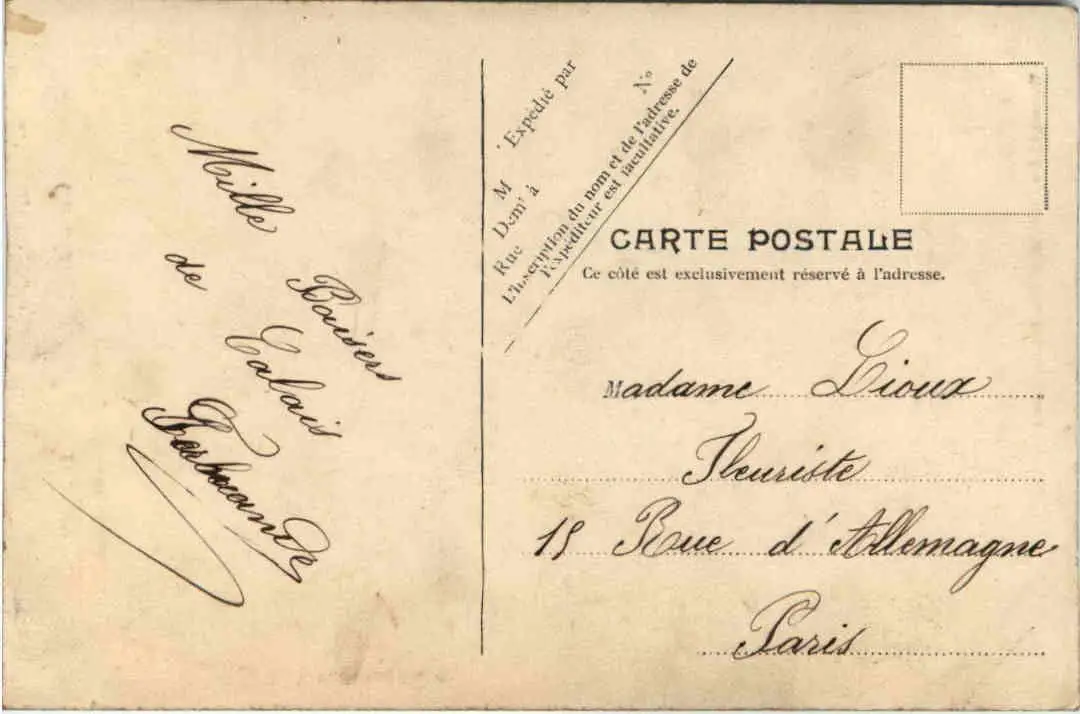 Mille
Baisers
de
Calais
Expédié par
M
Demt à
Rue
N°
L'Inscription du nom et de l'adresse de
l'expéditeur est facultative.
CARTE POSTALE
Ce côté est exclusivement réservé à l'adresse.
Madame Lioux
Fleuriste
15 Rue d'Allemagne
Paris